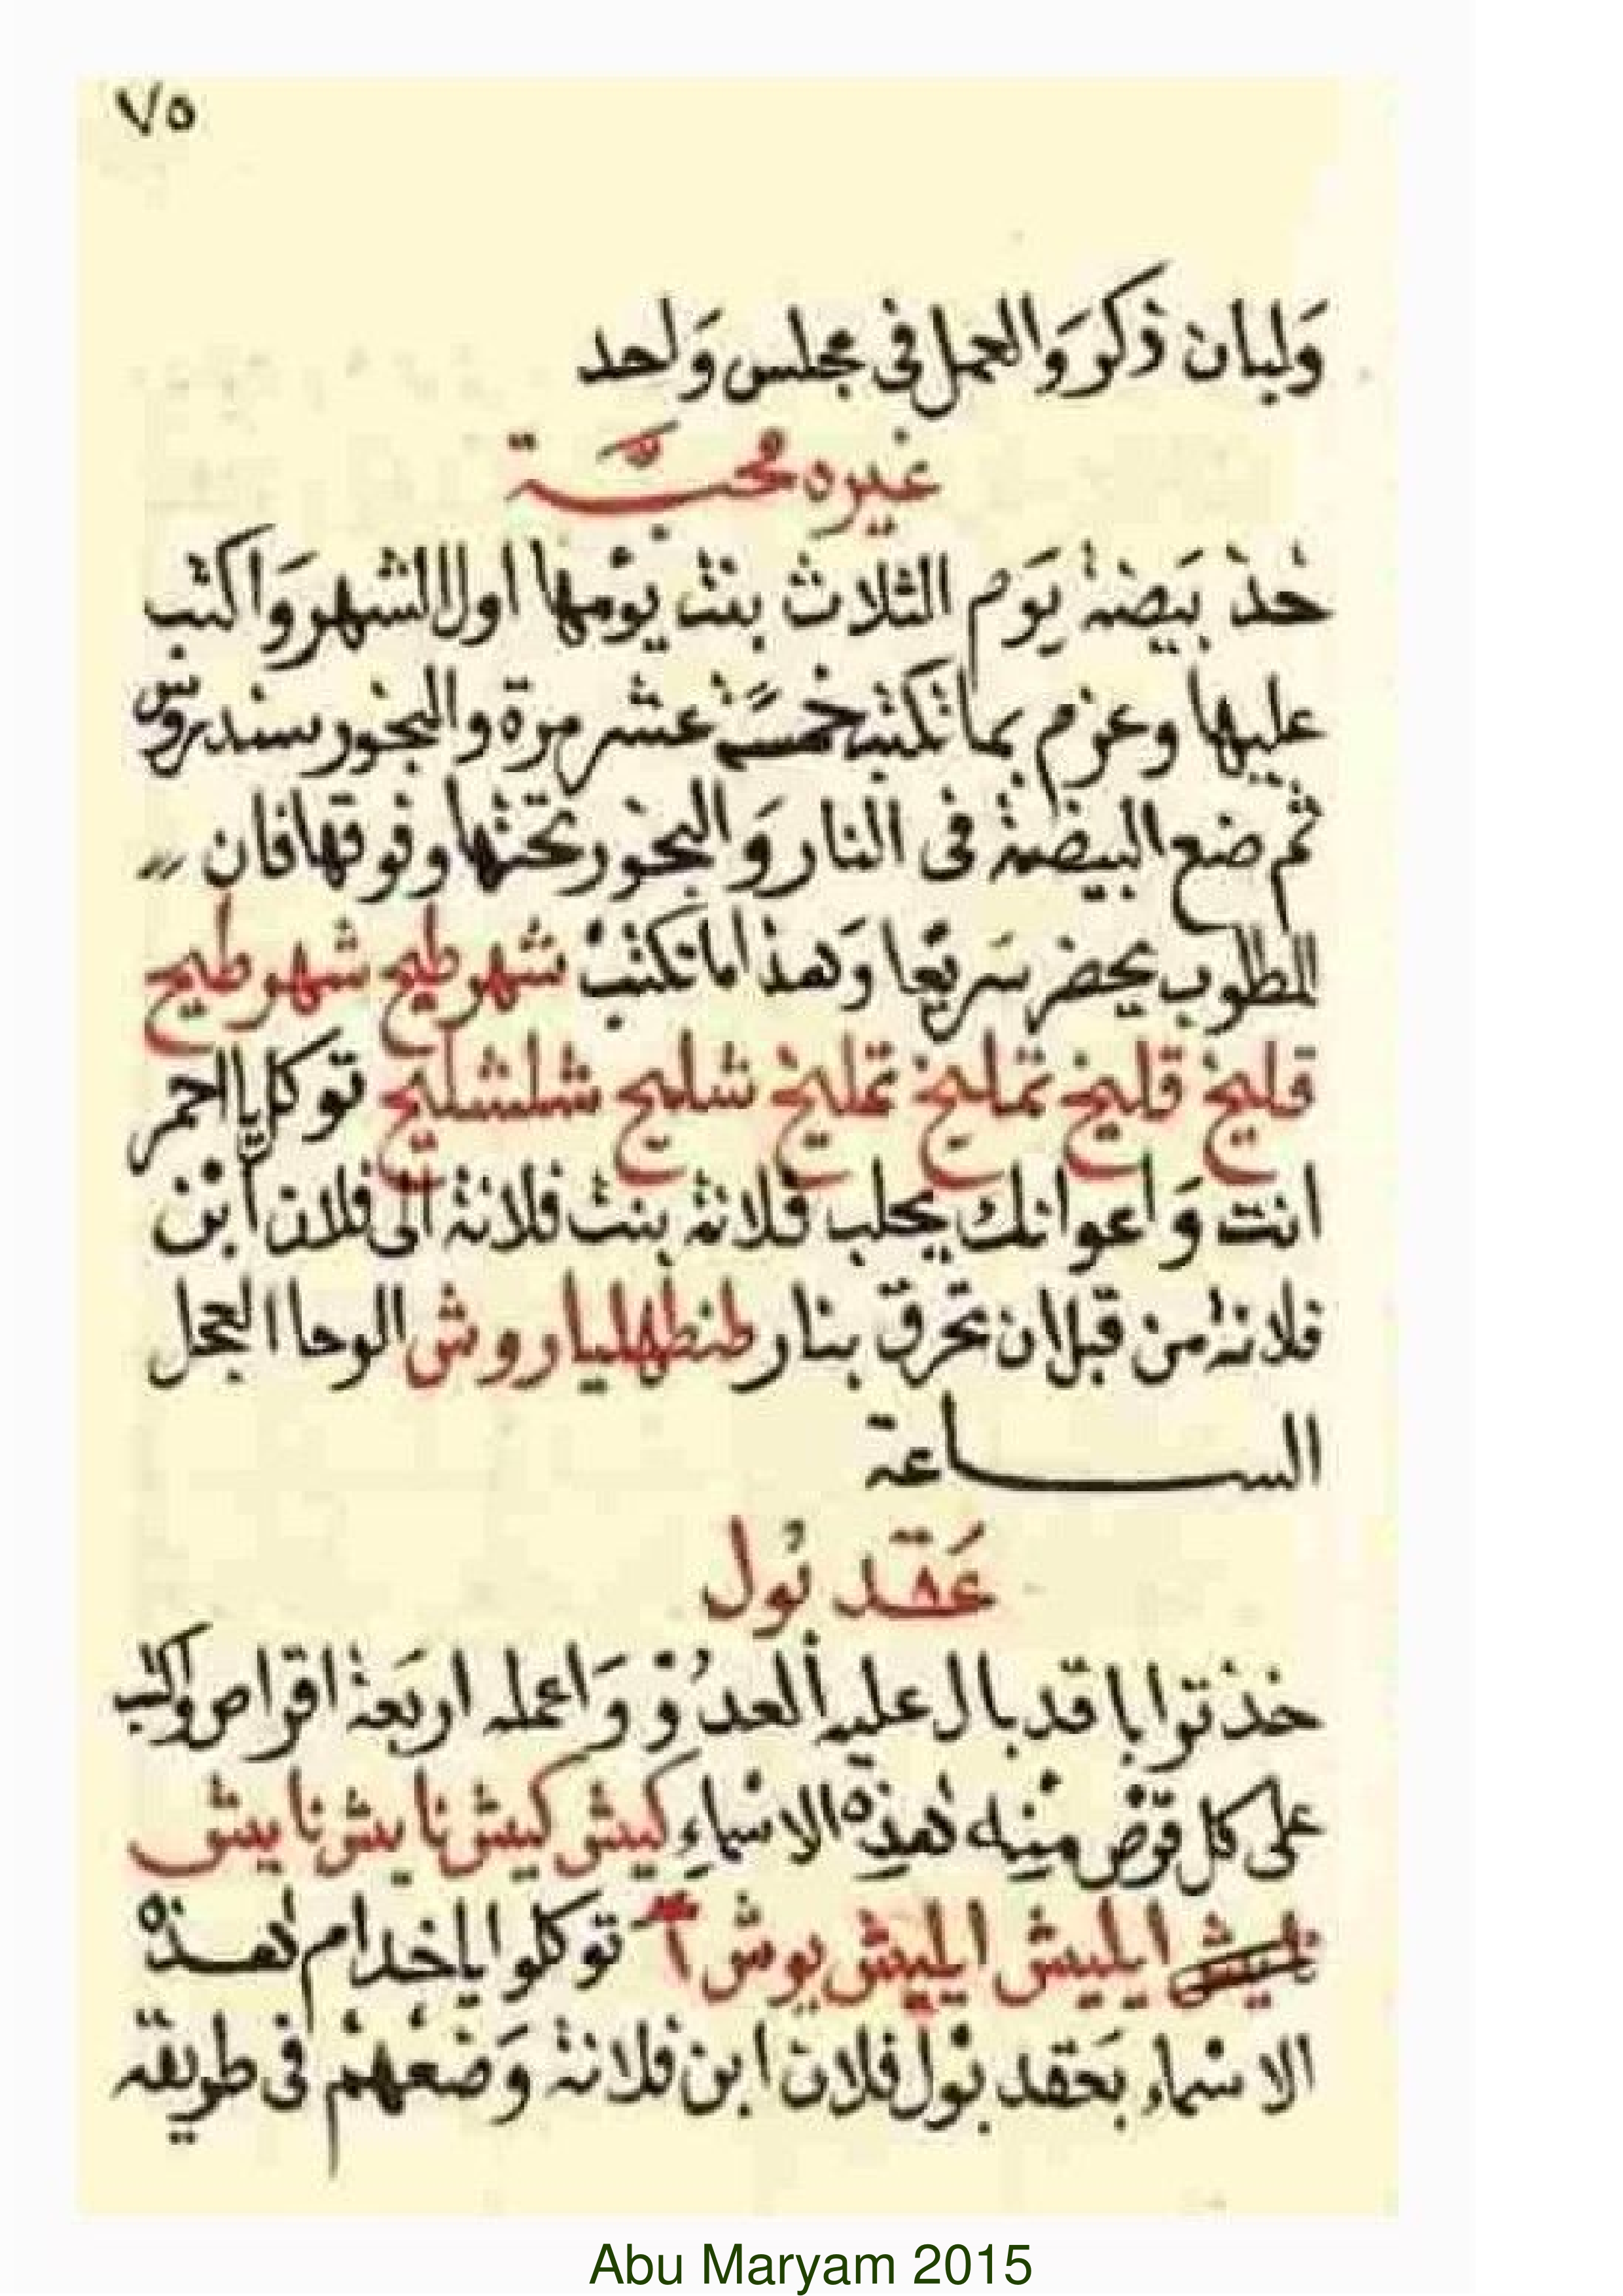 ٧٥
وَلبان ذكر وَالعمل فى مجلس وَاحد
غيره محبّة
خذ بَيضة يَوم الثلاث بنت يومها اول الشهر وَاكتب
عليها وعزم بما تكتب خمسَة عشر مرة والبخور سندروس
ثم ضع البيضة فى النار وَالبخور تحتها وفوقها فان
المطلوب يحضر سَريعا وَهذا ما تكتب شهوطيح شهوطيح
قليخ قليخ تمليخ تمليخ شليح شلشليح توكل يا احمر
انت وَاعوانك يجلب فلانة بنت فلانة الى فلان ابن
فلانة من قبل ان تحرق بنار طنطهليا روش الوحا العجل
الساعة
عَقد بُول
خذ ترابا قد بال عليه العدُوْ وَاعمله اربَعة اقراص واكتب
على كل قرْص منه هذه الاسماءِ كيش كيش نايش نايش
ايليش ايليش يوش توكلوا ياخدام هذه
الاسماء بَعقد بَول فلان ابن فلانة وَضعهم فى طريقه
Abu Maryam 2015